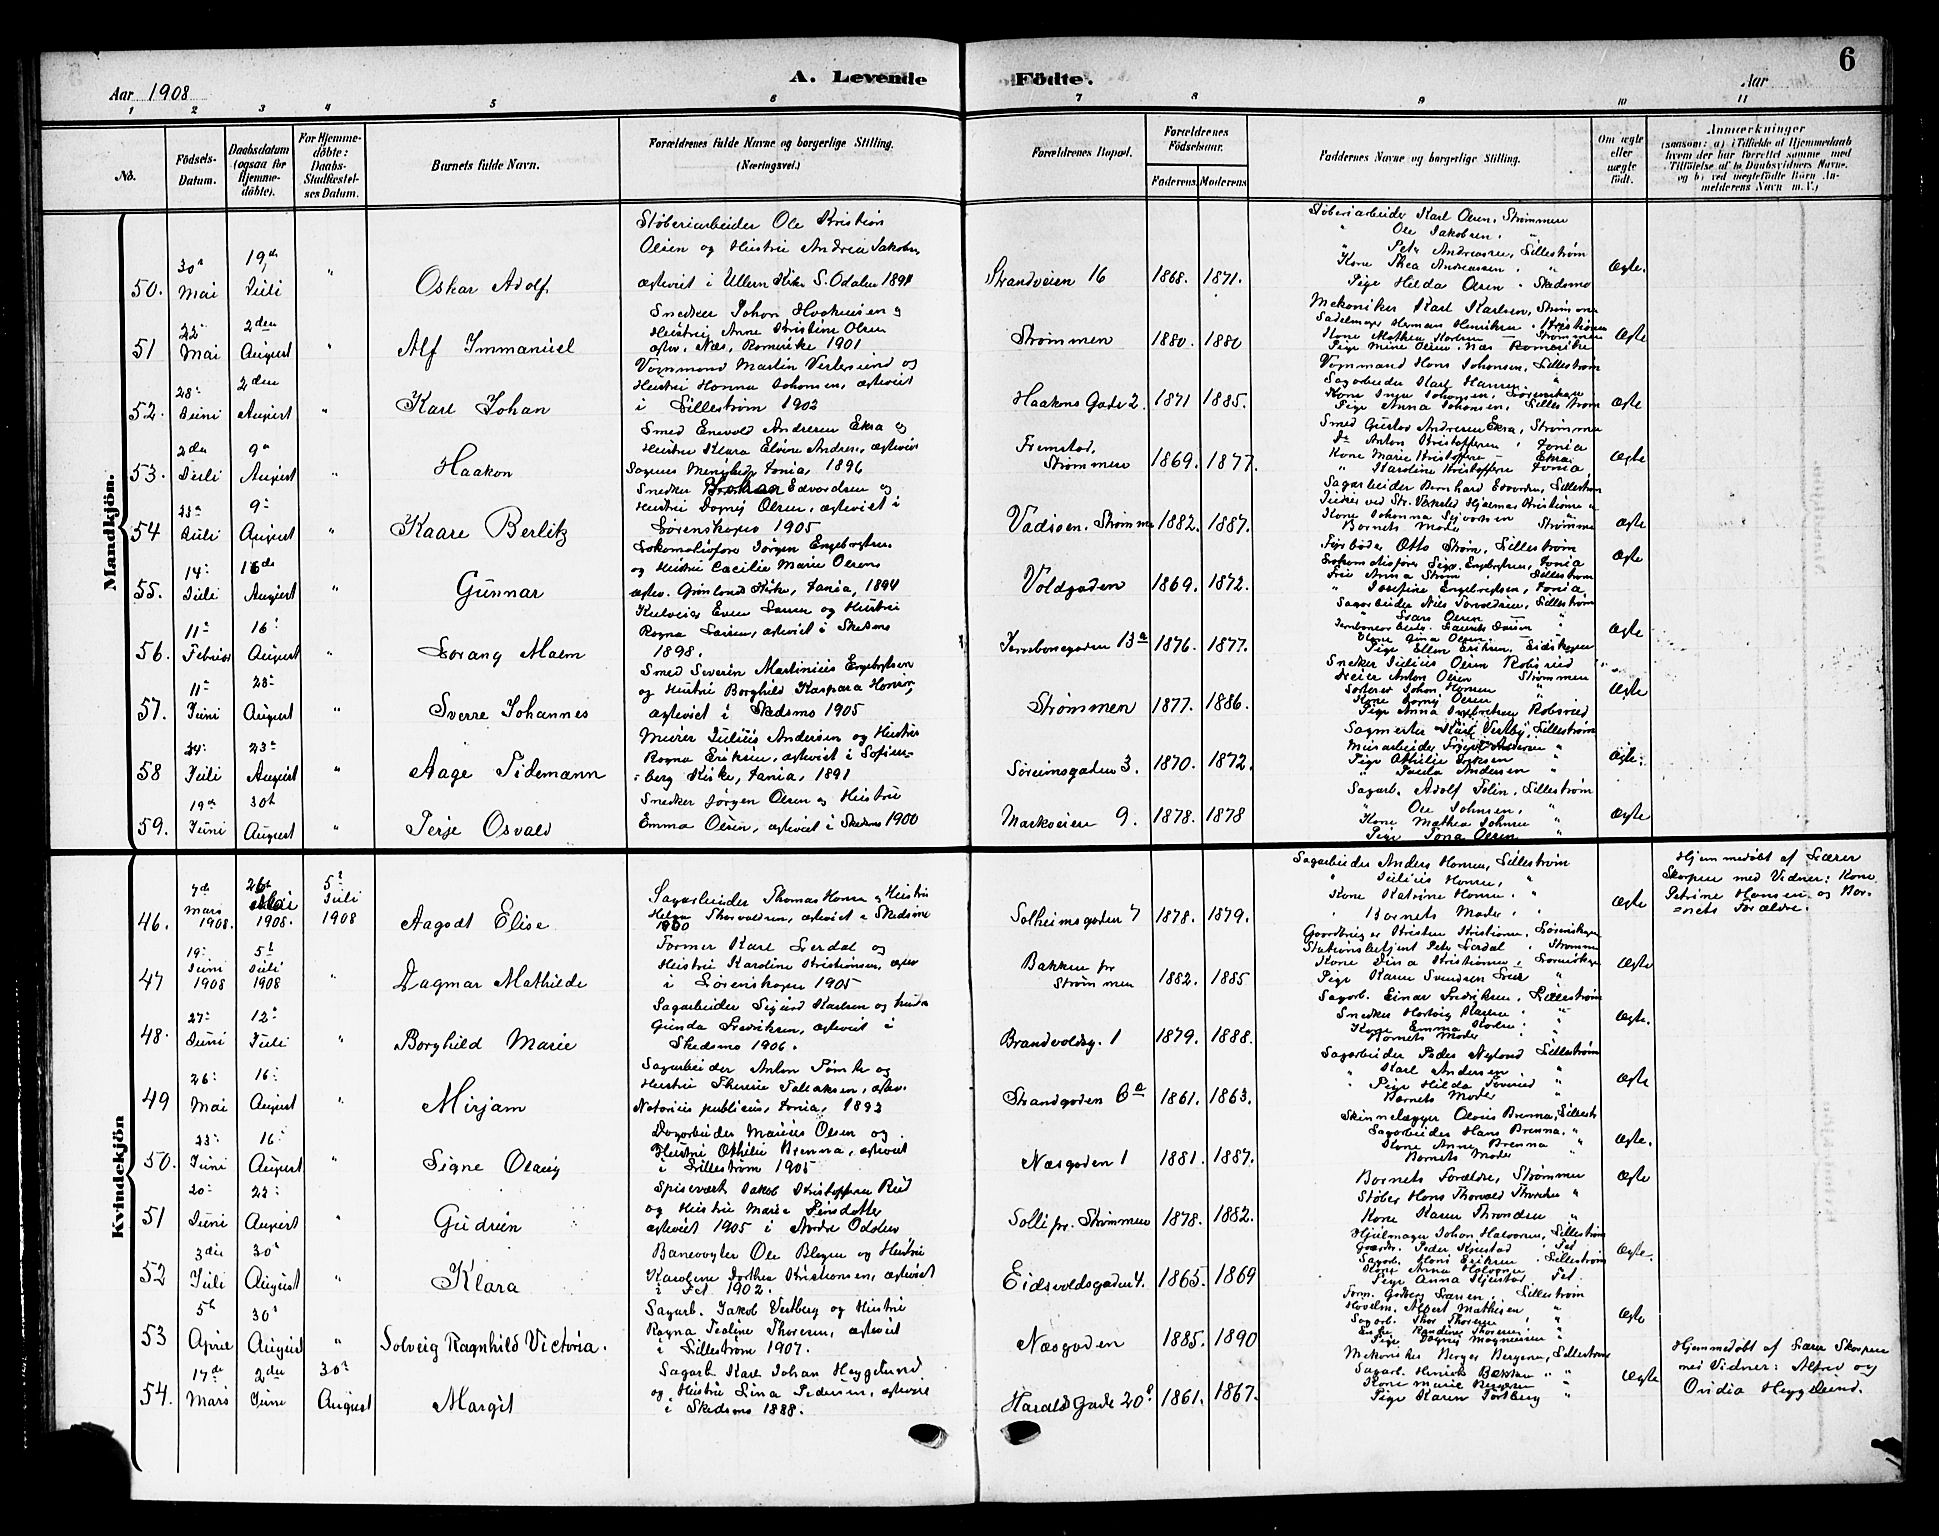 6
A. Levende Födte.
Aar 1908
Aar
1 2 3 4 5 6 7 8 9 10 11
No.
Födsels-Datum.
Daabsdatum (ogsaa for Hjemme-döbte).
For Hjemme-döbte: Daabs-Stadfæstel-ses Datum.
Barnets fulde Navn.
Forældrenes fulde Navne og borgerlige Stilling. (Næringsvei.)
Forældrenes Bopæl.
Forældrenes Födselsaar.
Faderens. Moderens.
Faddernes Navne og borgerlige Stilling.
Om ægte eller uægte födt.
Anmærkninger
(saasom: a) i Tilfælde af Hjemmedaab hvem der har forrettet samme med Tilföielse af to Daabsvidners Navne. og b) ved uægtefödte Börn An-melderens Navn m. V.)
Mandkjön.
50. 30 Mai 19 Juli " Oskar Adolf
Støberiarbeider Ole Kristian
Olsen og Hustru Andrea Jakobs,
ægteviet i Ullern Kirke S. Odalen 1891
Strandveien 16 1868. 1871.
Støberiarbeider Karl Olsen, Strømmen
" Ole Jakobsen, "
" Petr Andreasen, Lillestrøm
Kone Thea Andreassen, "
Pige Hilda Olsen, Skedsmo
Ægte.
51 22 Mai 2den August " Alf Immanuel
Snedker Johan Haakensen og
Hustru Anne Kristine Olsen
ægtev. Næs, Romerike 1901
Strømmen 1880. 1880
Mekaniker Karl Karlsen, Strømmen
Sadelmager Herman Henriksen, Kristiania
Kone Mathea Karlsen — Strømmen
Pige Mine Olsen, Næs Romerike
Ægte
52. 28 Juni 2den August " Karl Johan
Vognmand Martin Vestersund og
Hustru Hanna Johansen, ægteviet
i Lillestrøm 1902
Haakons Gade 2. 1871 1885.
Vognmand Hans Johansen, Lillestrøm
Sagarbeider Karl Hansen, "
Pige Anna Johansen, Lillestrøm
Ægte
53. 2den Juli 9 August " Haakon
Smed Enevold Andersen Ekra og
Hustru Klara Elvine Anders, ægteviet
Sagenes Menighed, Xania, 1896
Fremstad, Strømmen 1869. 1877.
Smed Gustav Andersen Ekra, Strømmen
Do Anton Kristoffersen, Xania
Kone Marie Kristoffersen — Ekra
" Karoline Kristoffersen Xania
Ægte
54 23 Juli 9 August " Kaare Berlitz
Snedker Johan Edvardsen og
Hustru Dagny Olsen, ægteviet i
Lørenskogen 1905
Vadisen. Strømmen 1882. 1887.
Sagarbeider Bernhard Edvardsen, Lillestrøm
Barnets Moder Strømmen
Ægte
55. 14 Juli 16de August " Gunnar
Lokomotivfører Jørgen Engebretsen
og Hustru Cæcilie Marie Olsen
ægtev. Grønlands Kirke, Xania, 1894
Voldgaden 1869. 1872.
Fyrbøder Otto Strøm, Lillestrøm
Frue Anna Strøm, Lillestrøm
" Josefine Engebretsen, Xania,
Ægte
56. 11 Februar 16 August " Lorang Malm
Ragna Larsen, ægteviet i Skedsmo
1898.
Jernbanegaden 13a 1876. 1877.
Sagarbeider Nils Torvaldsen, Lillestrøm
" Lars Olsen "
Kone Gina Olsen "
Pige Ellen Eriksen, Eidskogen
Ægte
57. 11 Juni 23 August " Sverre Johannes
Smed Severin Martinius Engebretsen
og Hustru Borghild Kaspara Hansen,
ægteviet i Skedsmo 1905
Strømmen 1877. 1886.
Snedker Julius Olsen Robsrud
Anton Olsen Strømmen
Johan Hansen "
Kone Dagny Olsen
Pige Anna Robsrud
Ægte
58 24 Juli 23 August " Aage Tidemann
Murer Julius Andersen og Hustru
Ragna Eriksen, ægteviet i Sofien-
berg Kirke, Xania, 1891
Sørumsgaden 3. 1870. 1872.
Sagmester Karl Vestby Lillestrøm
Pige Othilie Eriksen "
" Paula Andersen "
Ægte.
59. 19 Juni 30 August " Terje Osvald
Snedker Jørgen Olsen og Hustru
Emma Olsen, ægteviet i Skedsmo 1900
Markveien 9. 1878. 1878
Sagarb. Adolf Folin, Lillestrøm
" Ole Johnsen, "
Kone Mathea Johnsen "
Pige Tona Olsen "
Ægte
Kvindekjön
46. 7de Mars 1908. 26 Mai 1908. 5 Juli 1908 Aagodt Elise
Sagarbeider Thomas Hansen og Hustru
Helga Thorvaldsen, ægteviet i Skedsmo
1900
Solheimsgaden 7 1878. 1879.
Sagarbeider Anders Hansen, Lillestrøm
" Julius Hansen, "
Kone Katrine Hansen, "
" Barnets Moder, "
Ægte
Hjemmedøbt af Lærer
Skorpen med Vidner: Kone
Petrine Hansen og Bar-
nets Forældre.
47 19 Juni 1908 5 Juli 1908 " Dagmar Mathilde
Former Karl Lerdal og
Hustru Karoline Kristiansen, ægtev
i Lørenskogen 1905
Bakken pr Strømmen 1882. 1885
Gaardbruger Kristen Kristiansen, Lørenskogen
Stationsbetjent Peter Lerdal, Strømmen
Kone Dina Kristiansen, Lørenskogen
Pige Karen Svendsen "
Ægte
48. 27 Juni 12 Juli " Borghild Marie
Sagarbeider Sigurd Karlsen og Hustru
Gunda Fredriksen, ægteviet i
Skedsmo 1906.
Brandvoldsg. 1 1879. 1888.
Sagarb. Einar Fredriksen, Lillestrøm
Snedker Hartvig Karlsen, "
Kone Emma Karlsen "
Barnets Moder "
Ægte.
49 26 Mai 16 August " Mirjam
Sagarbeider Anton Tømte og
Hustru Therese Tollaksen, ægtev.
Notarius publicus, Xania, 1892
Strandgaden 6a 1861. 1863.
Sagarbeider Peder Nyland Lillestrøm
" Karl Andersen "
" Pige Hilda "
Barnets Moder "
Ægte
50. 23 Juni 16 August " Signe Olaug
Dagarbeider Marius Olsen og
Hustru Othilie Brenna, ægteviet
i Lillestrøm 1905
Næsgaden 1 1881. 1887.
Skinnelægger Olaus Brenna, Lillestr.
Sagarbeider Hans Brenna. "
Kone Anne Brenna "
Barnets Moder "
Ægte.
51 20 Juni 23 August " Gudrun
Spisevært Jakob Kristoffersen Rud
og Hustru Marie
ægteviet 1905 i Nordre Odalen
Solli pr. Strømmen 1878. 1882.
Barnets Forældre, Strømmen
Støber Hans Thorvald "
Kone Karen "
Ægte
52 3die Juli 30 August " Klara
Banevogter Ole Blegen og Hustru
Karoline Dorthea Kristiansen, ægteviet
i Fet 1902.
Eidsvoldsgaden 4. 1865. 1869
Hjulmager Johan Halvorsen, Lillestrøm
Gaardbr. Peder Kjustad, Fet
Sagarb. Hans Eriksen, Lillestrøm
Kone Anna Halvorsen "
Pige Anna Kjustad Fet.
Ægte.
53 5 April 30 August " Solveig Ragnhild Victoria.
Sagarb. Jakob Vestberg og Hustru
Ragna Pealine Thoresen, ægteviet
i Lillestrøm 1907.
Næsgaden 1885. 1890
Lillestrøm
Høvelm. Albert Mathisen "
Sagarb. Thor Thoresen "
Enke Randine Thoresen "
Pige Dagny Magnussen "
Ægte
54. 17de Mars 2den Juni 30 August Margit
Sagarb. Karl Johan Heggelund
og Hustru Lina Pedersen, ægteviet
i Skedsmo 1888.
Haralds Gade 20 1861. 1867.
Mekaniker Berger Bergersen, Lillestrøm
Sagarb. Henrik Bakken "
Kone Marie Bergersen "
Pige Karen Fortberg "
Ægte
Hjemmedøbt af Lærer Skorpen
med Vidner: Alfred og
Ovidia Heggelund.